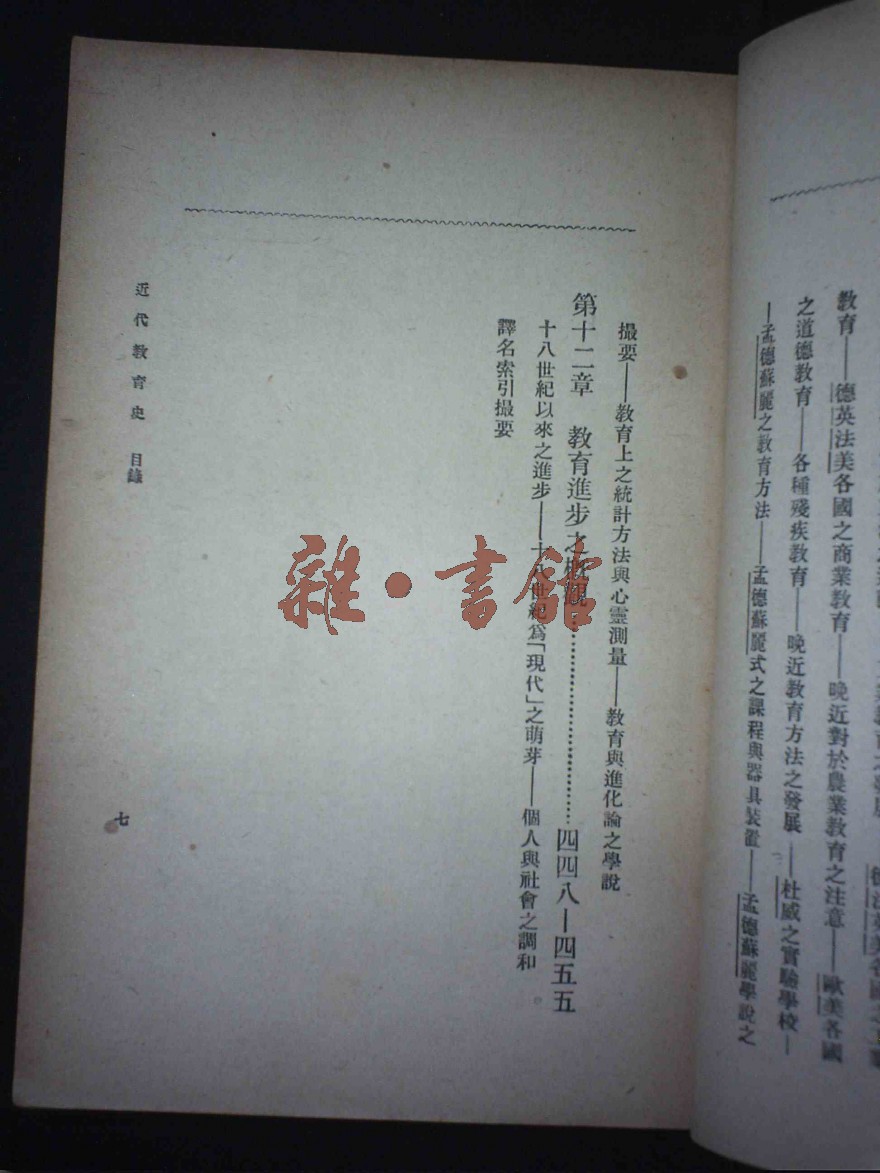 教育——德英法美各國之商業教育——晚近對於農業教育之注意——歐美各國
之道德教育——各種殘疾教育——晚近教育方法之發展——杜威之實驗學校—
—孟德蘇麗之教育方法——孟德蘇麗式之課程與器具裝置——孟德蘇麗學說之
撮要——教育上之統計方法與心靈測量——教育與進化論之學說
第十二章 教育進步之概觀……………………四四八—四五五
十八世紀以來之進步——十八世紀為「現代」之萌芽——個人與社會之調和。
譯名索引撮要
近代教育史 目錄
七
雜·書館